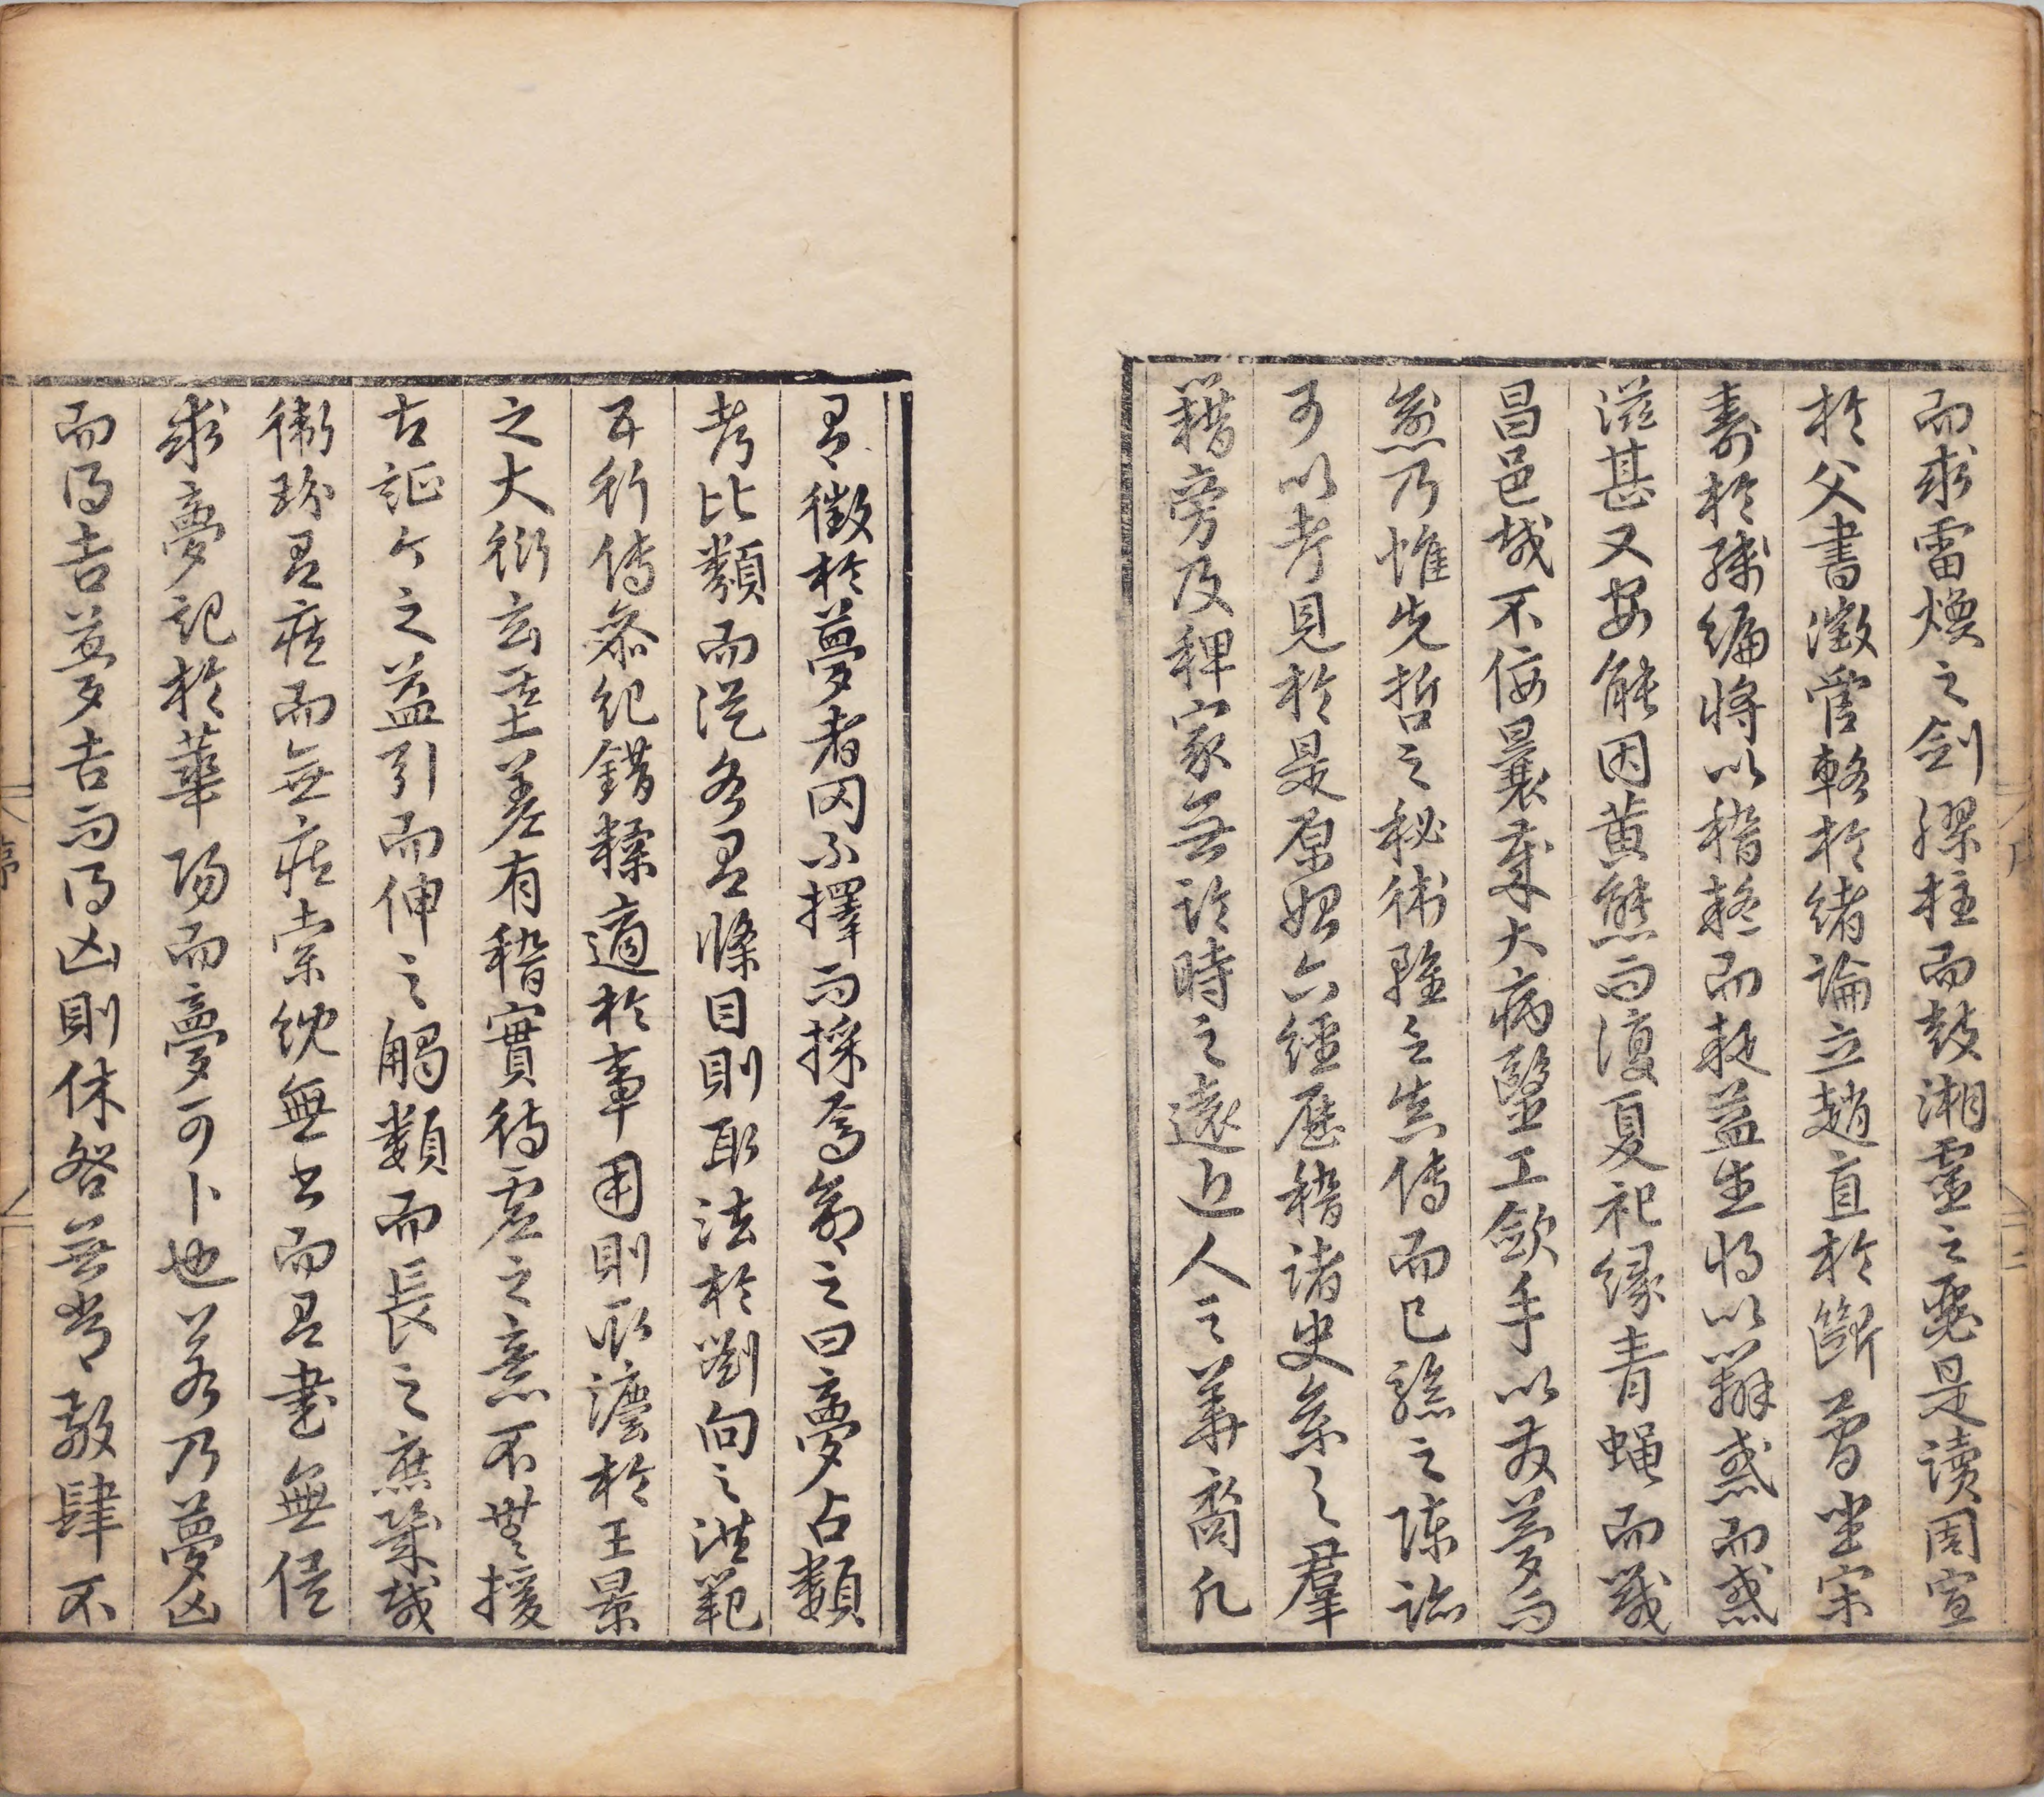 而求雷煥之劍膠柱而鼓湘靈之瑟是讀周宣
於父書徵管輅於緒論立趙直於斷曾坐宋
壽於殘編將以稽疑而疑益生將以辨惑而惑
滋甚又安能因黃熊而復夏祀緣青蠅而戮
昌邑哉不佞曩嬰大病醫工斂手以友夢而
愈乃惟先哲之秘術雖之失傳而已驗之陳跡
可以考見於是原始六經歷稽諸史參之羣
籍旁及稗家無論時之遠近人之華裔凡
有徵於夢者罔不擇而採焉命之曰夢占類
考比類而從各有條目則取法於劉向之洪範
五行傳參紀錯糅適於事用則取灋於王景
之大衍玄基差有稽實待虛之意不無援
古証今之益引而伸之觸類而長之庶幾哉
衛玠有疾而無疾索紞無書而有書無俟
求夢記於華陽而夢可卜也若乃夢凶
而得吉夢吉而得凶則休咎無常敬肆不
序
二